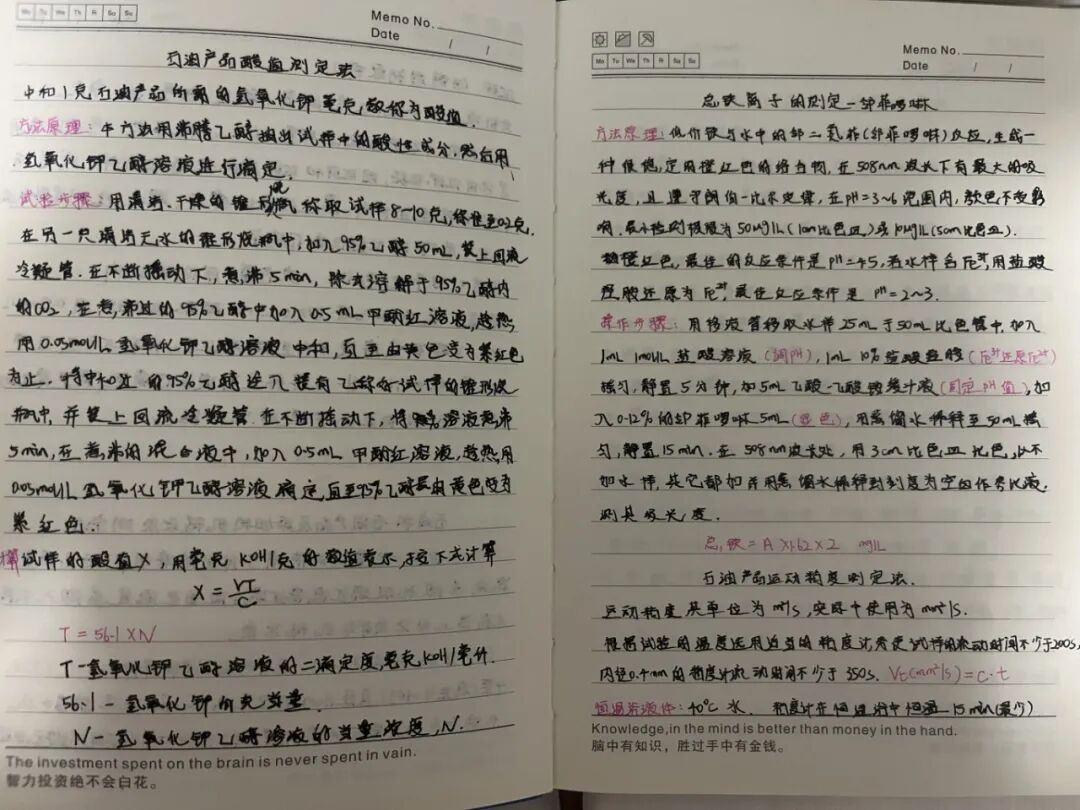 Mo Tu We Th Fr Sa Su
Memo No.
Date / /
石油产品酸值测定法
中和1克石油产品所需的氢氧化钾毫克数称为酸值.
方法原理:本方法用沸腾乙醇抽出试样中的酸性成分.然后用
氢氧化钾乙醇溶液进行滴定.
试验步骤:用清洁.干燥的锥形瓶称取试样8-10克,称准至0.2克.
在另一只清洁无水的锥形瓶中,加入95%乙醇50mL,装上回流
冷凝管.在不断摇动下,煮沸5min,除去溶解于95%乙醇内
的CO2,在煮沸过的95%乙醇中加入0.5mL甲酚红溶液,趁热
用0.05mol/L氢氧化钾乙醇溶液中和,直至由黄色变为紫红色
为止.将中和过的95%乙醇注入装有已称好试样的锥形烧
瓶中,并装上回流冷凝管.在不断摇动下,将溶液煮沸
5min,在煮沸的混合液中,加入0.5mL甲酚红溶液,趁热用
0.05mol/L氢氧化钾乙醇溶液滴定,直至95%乙醇层由黄色变为
紫红色.
试样的酸值X,用毫克KOH/克的数值表示,按下式计算
X = VT/C
T = 56.1 × N
T-氢氧化钾乙醇溶液的滴定度毫克KOH/毫升.
56.1-氢氧化钾的克当量.
N-氢氧化钾乙醇溶液的当量浓度,N.
The investment spent on the brain is never spent in vain.
智力投资绝不会白花。
Mo Tu We Th Fr Sa Su
Memo No.
Date / /
总铁离子的测定-邻菲啰啉
方法原理:低价铁与水中的邻二氮菲(邻菲啰啉)反应,生成一
种很稳定的橙红色的络合物,在508nm波长下有最大的吸
光度,且遵守朗伯-比尔定律,在pH=3~6范围内,颜色不受影
响.最小检测极限为50μg/L(1cm比色皿)或10μg/L(5cm比色皿).
橙红色,最佳的反应条件是pH=4.5,若水样含Fe³⁺,用盐酸
羟胺还原为Fe²⁺,最佳反应条件是pH=2~3.
操作步骤:用移液管移取水样25mL于50mL比色管中,加入
1mL 1mol/L盐酸溶液(调pH),1mL 10%盐酸羟胺(Fe³⁺还原Fe²⁺)
摇匀,静置5分钟,加5mL乙酸-乙酸铵缓冲液(固定pH值),加
入0.12%的邻菲啰啉5mL(显色),用蒸馏水稀释至50mL摇
匀,静置15min.在508nm波长处,用3cm比色皿比色,以不
加水样,其它都加并用蒸馏水稀释到刻度为空白作参比液.
测其吸光度.
总铁=A×1.62×2 mg/L
石油产品运动粘度测定法.
运动粘度其单位为m²/s,实际中使用为mm²/s.
根据试验的温度选用适当的粘度计务使试样的流动时间不少于200s,
内径0.4mm的粘度计流动时间不少于350s. Vt(mm²/s)=c·t
恒温浴液体:40℃水. 粘度计在恒温浴中恒温15min(最少)
Knowledge,in the mind is better than money in the hand.
脑中有知识，胜过手中有金钱。